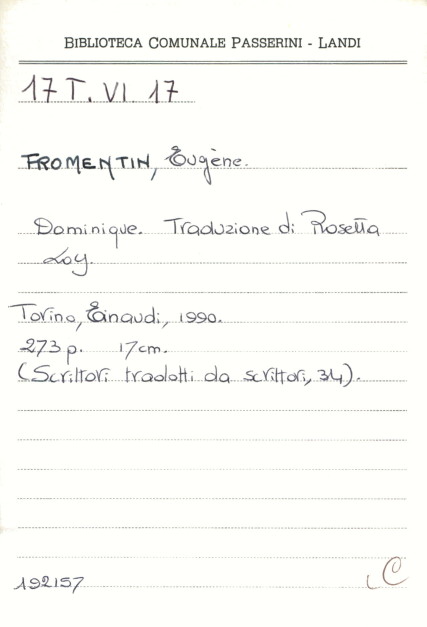 BIBLIOTECA COMUNALE PASSERINI - LANDI
17 T. VI. 17
FROMENTIN, Eugène.
Dominique. Traduzione di Rosetta
Loy.
Torino, Einaudi, 1990.
273 p. 17 cm.
(Scrittori tradotti da scrittori, 34).
192157
C